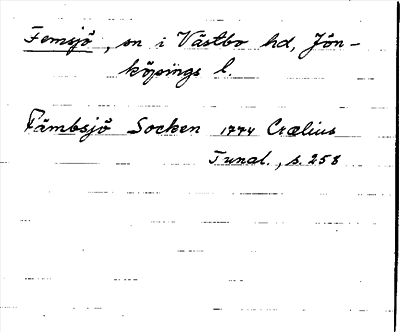 Femsjö, sn i Västbo hd, Jön-
köpings l.
Fämbsjö Socken 1774 Crælius
Tunal., s. 258